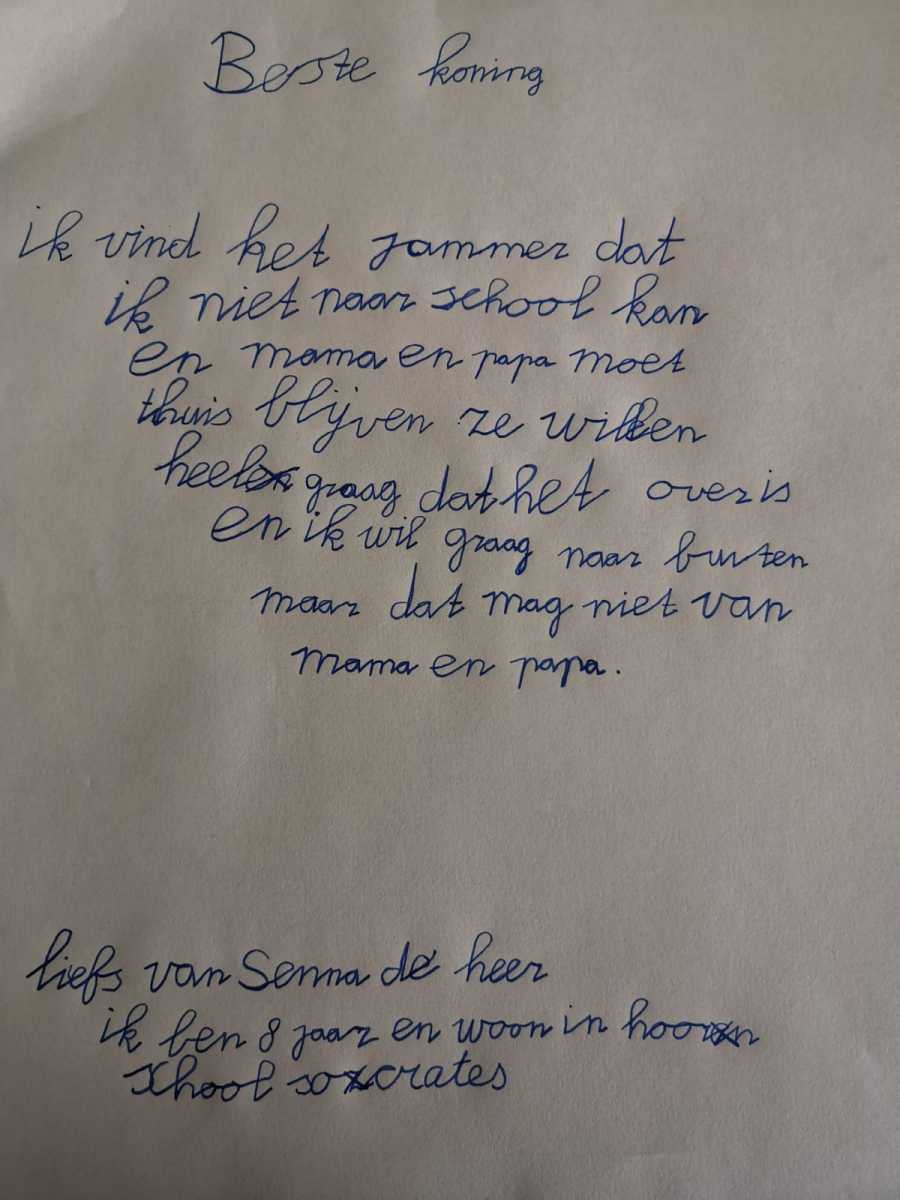 Beste koning
ik vind het jammer dat
ik niet naar school kan
en mama en papa moet
thuis blijven ze willen
heel graag dat het over is
en ik wil graag naar buiten
maar dat mag niet van
mama en papa.
liefs van Senna de heer
ik ben 8 jaar en woon in hoorn
school socrates